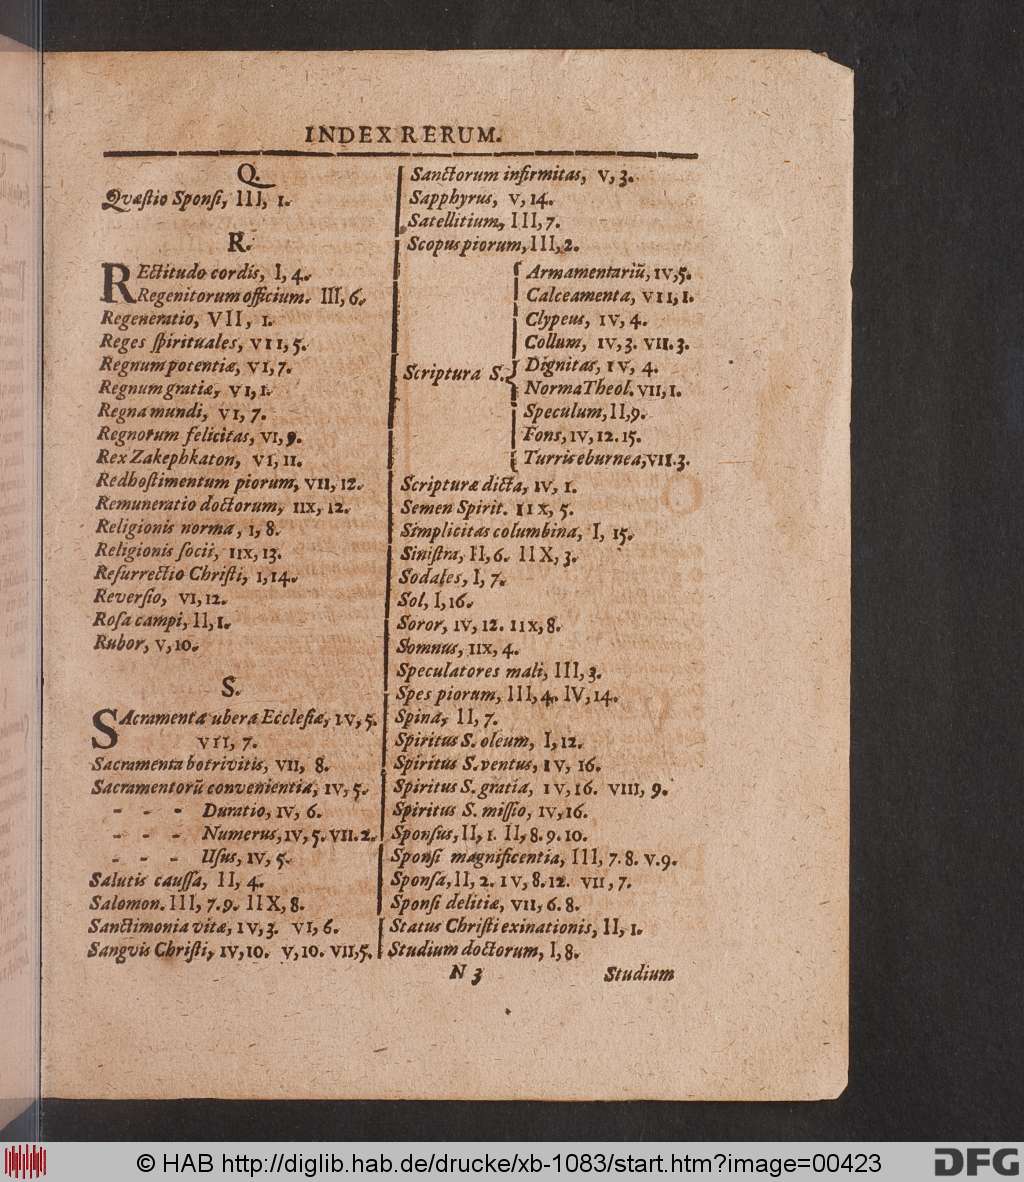 INDEX RERUM.
Q.
Quæſtio Sponſi, III, 1.
R.
REctitudo cordis, I, 4.
Regenitorum officium. III, 6.
Regeneratio, VII, 1.
Reges ſpirituales, VII, 5.
Regnum potentiæ, VI, 7.
Regnum gratiæ, VI, 1.
Regna mundi, VI, 7.
Regnorum felicitas, VI, 9.
Rex Zakephkaton, VI, 11.
Redhoſtimentum piorum, VII, 12.
Remuneratio doctorum, IIX, 12.
Religionis norma, 1, 8.
Religionis ſocii, IIX, 13.
Reſurrectio Chriſti, 1, 14.
Reverſio, VI, 12.
Roſa campi, II, 1.
Rubor, V, 10.
S.
SAcramenta ubera Eccleſiæ, IV, 5.
VII, 7.
Sacramenta botrivitis, VII, 8.
Sacramentorũ convenientia, IV, 5.
- - - Duratio, IV, 6.
- - - Numerus, IV, 5. VII. 2.
- - - Uſus, IV, 5.
Salutis cauſſa, II, 4.
Salomon. III, 7. 9. IIX, 8.
Sanctimonia vitæ, IV, 3. VI, 6.
Sangvis Chriſti, IV, 10. V, 10. VII, 5.
Sanctorum infirmitas, V, 3.
Sapphyrus, V, 14.
Satellitium, III, 7.
Scopus piorum, III, 2.
Scriptura S.
Armamentariũ, IV, 5.
Calceamenta, VII, 1.
Clypeus, IV, 4.
Collum, IV, 3. VII. 3.
Dignitas, IV, 4.
Norma Theol. VII, 1.
Speculum, II, 9.
Fons, IV, 12. 15.
Turris eburnea, VII. 3.
Scripturæ dicta, IV, 1.
Semen Spirit. IIX, 5.
Simplicitas columbina, I, 15.
Siniſtra, II, 6. IIX, 3.
Sodales, I, 7.
Sol, I, 16.
Soror, IV, 12. IIX, 8.
Somnus, IIX, 4.
Speculatores mali, III, 3.
Spes piorum, III, 4. IV, 14.
Spina, II, 7.
Spiritus S. oleum, I, 12.
Spiritus S. ventus, IV, 16.
Spiritus S. gratia, IV, 16. VIII, 9.
Spiritus S. miſſio, IV, 16.
Sponſus, II, 1. II, 8. 9. 10.
Sponſi magnificentia, III, 7. 8. V. 9.
Sponſa, II, 2. IV, 8. 12. VII, 7.
Sponſi delitiæ, VII, 6. 8.
Status Chriſti exinationis, II, 1.
Studium doctorum, I, 8.
N 3 Studium
© HAB http://diglib.hab.de/drucke/xb-1083/start.htm?image=00423
DFG